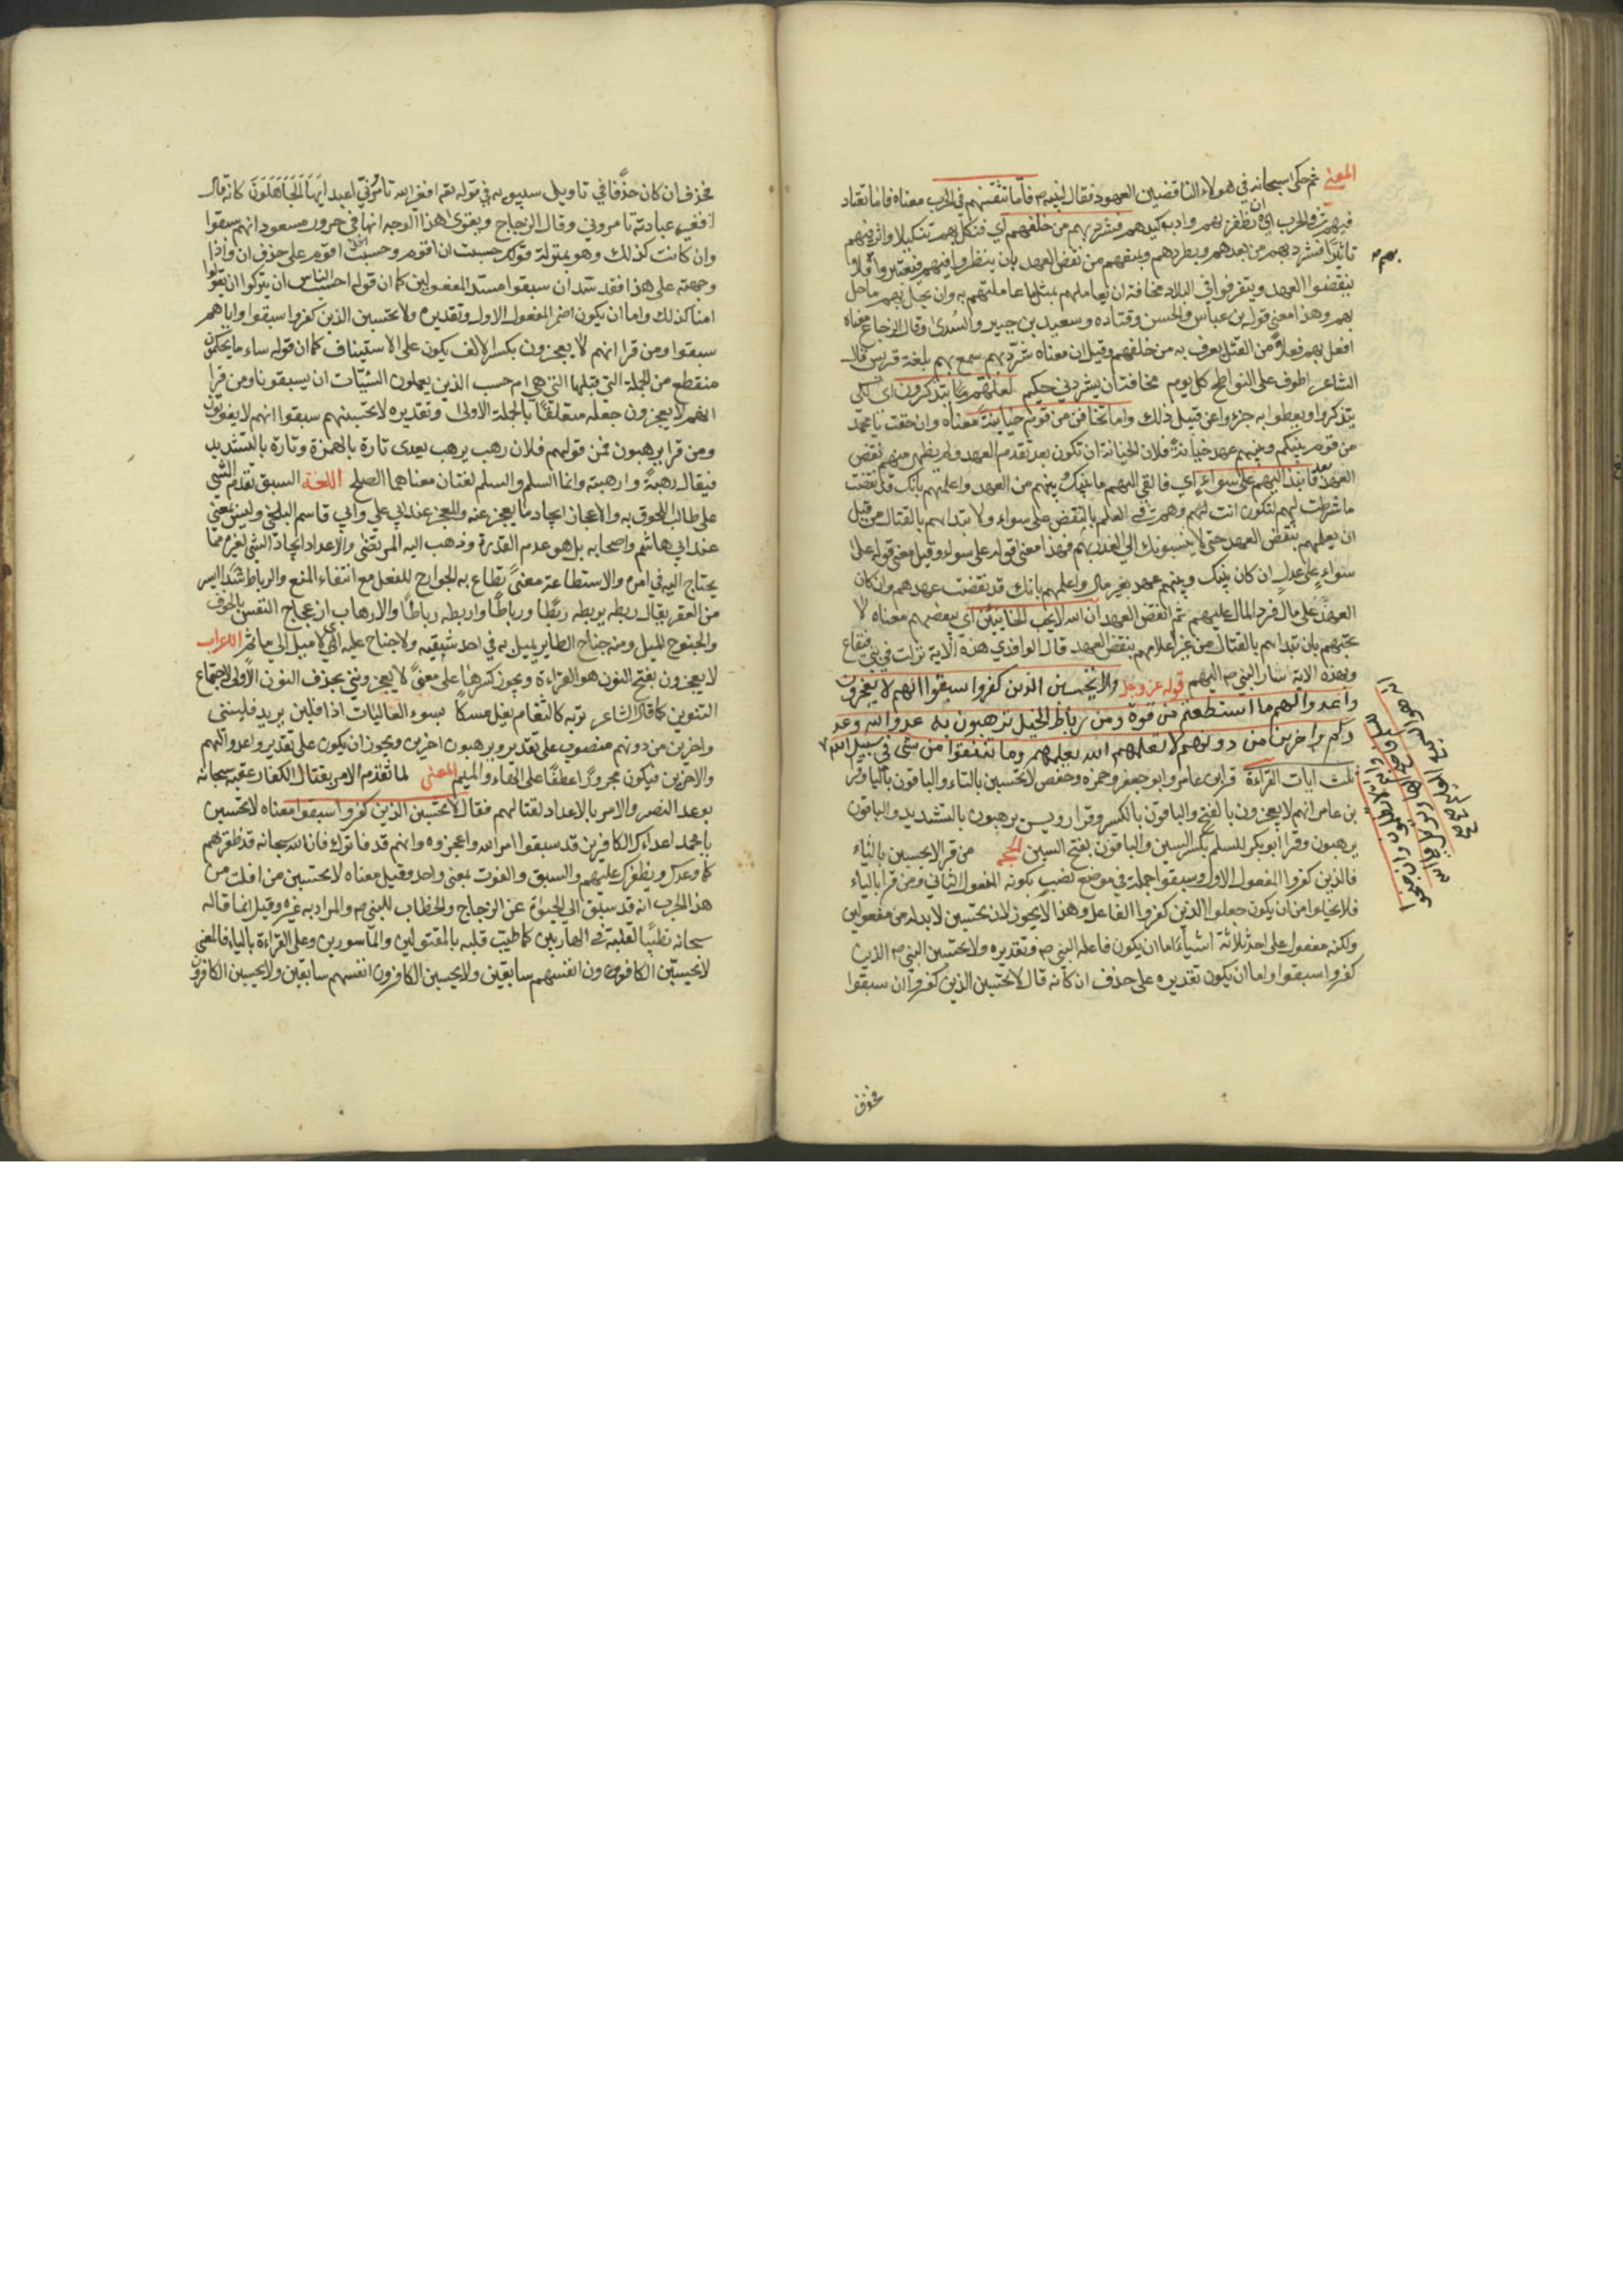 المعنى ثم حكى سبحانه في هولاء الناقضين العهود فقال لنبيه ص فاما تثقفنهم في الحرب معناه فاما تصادفنهم
فيهم في الحرب اي ان تظفر بهم وادركتهم فشرد بهم من خلفهم اي فنكل بهم تنكيلا واثر فيهم
تاثيرا فشرد بهم من بعدهم ويطردهم ويمنعهم من نقض العهد بان ينظروا فيهم فيعتبروا فلا
بهم
ينقضوا العهد ويتفرقوا في البلاد مخافة ان تعاملهم بمثل ما عاملتهم به وان يحل بهم ما حل
بهم وهذا معنى قول بن عباس والحسن وقتاده وسعيد بن جبير والسدى وقال الزجاج معناه
افعل بهم فعلا من القتل يفرق به من خلفهم وقيل ان معناه شرد بهم سمع بهم بلغة قريش قال
الشاعر اطوف على النواطح كل يوم مخافة ان يشرد بي حكيم لعلهم يتذكرون اي لكى
يتذكروا ويتعظوا به وينزجروا عن قبيل ذلك واما تخافن من قوم خيانة معناه وان خفت يا محمد
من قوم بينكم وبينهم عهد خيانة فلان الخيانة ان تكون بعد تقدم العهد ولم يظهر منهم نقض
العهد بعد فانبذ اليهم على سواء اي فالقي اليهم ما بينك وبينهم من العهد واعلمهم بانك قد نقضت
ما شرطت لهم لتكون انت لهم وهم في العلم بالنقض على سواء ولا تبتدايهم بالقتال من قبل
ان تعلمهم بنقض العهد حتى لا ينسبونك الى الغدر بهم فهذا معنى قوله على سواء وقيل معنى قوله على
سواء على عدل ان كان بينك وبينهم عهد بغير مال واعلمهم بانك قد نقضت عهدهم وان كان
العهد على مال فرد المال عليهم ثم انقض العهد ان الله لا يحب الخاينين اي يبغضهم معناه لا
تخنهم بان تبتدايهم بالقتال من غير اعلامهم بنقض العهد قال الواقدي هذه الاية نزلت في بني قينقاع
وبهذه الاية سار النبي ص اليهم قوله عز وجل ولا يحسبن الذين كفروا سبقوا انهم لا يعجزون
واعدوا لهم ما استطعتم من قوة ومن رباط الخيل ترهبون به عدو الله وعد
وكم واخرين من دونهم لا تعلمونهم الله يعلمهم وما تنفقوا من شى في سبيل الله
ثلث ايات القراءة قرا بن عامر وابو جعفر وحمزه وحفص لا يحسبن بالياء والباقون بالتاء وقرا
بن عامر انهم لا يعجزون بالفتح والباقون بالكسر وقرا رويس ترهبون بالتشديد والباقون
يرهبون وقرا ابو بكر للسلم بكسر السين والباقون بفتح السين الحجه من قرا لا تحسبن بالتاء
فالذين كفروا المفعول الاول وسبقوا جملة في موضع نصب بكونه المفعول الثاني ومن قرا بالياء
فلا يخلوا من ان يكون جعلوا الذين كفروا الفاعل وهذا لا يجوز لان يحسبن لابد له من مفعولين
ولكنه مفعول على احد ثلاثة اشياء اما ان يكون فاعله النبي ص وتقديره ولا يحسبن النبي ص الذين
كفروا سبقوا واما ان يكون تقديره على حذف ان كانه قال لا يحسبن الذين كفروا ان سبقوا
فحذف
فحذف ان كان حذفا في تاويل سيبويه في قوله تعه افغير الله تامروني اعبد ايها الجاهلون كانه قال
افغير عبادته تامروني وقال الزجاج ويقوى هذا الوجه انها في حرف بن مسعود انهم سبقوا
وان كانت كذلك وهو بمنزلة قولك حسبت ان اقوم وحسبت اقوم على حذف ان واذا
وجهته على هذا فقد سد ان سبقوا مسد المفعولين كما ان قوله احسب الناس ان يتركوا ان يقولوا
امنا كذلك واما ان يكون اضمر المفعول الاول وتقديره ولا يحسبن الذين كفروا سبقوا واياهم
سبقوا ومن قرا انهم لا يعجزون بكسر الالف يكون على الاستيناف كما ان قوله ساء ما يحكمون
منقطع من الجملة التي قبلها التي هي ام حسب الذين يعملون السيئات ان يسبقونا ومن قرا
انهم لا يعجزون جعله متعلقا بالجملة الاولى وتقديره لا تحسبنهم سبقوا انهم لا يفوتون
ومن قرا يرهبون فمن قولهم فلان رهب يرهب يعدى تارة بالهمزة وتارة بالتشديد
فيقال رهبته وارهبته وانما السلم والسلم لغتان معناهما الصلح اللغة السبق تقدم الشى
على طالب اللحوق به والاعجاز ايجاد ما يعجز عنه والعجز عند ابي علي وابي قاسم البلخي وليس بمعنى
عند ابي هاشم واصحابه بل هو عدم القدرة وذهب اليه المرتضى والاعداد اتخاذ الشى لغيره مما
يحتاج اليه في امره والاستطاعة معنى تطاع به الجوارح للفعل مع انتفاء المنع والرباط شد ايسر
من العقد يقال ربطه يربطه ربطا ورباطا واربطه رباطا والارهاب ازعجاج النفس بالخوف
والجنوح الميل ومنه جناح الطاير يميل به في احد شقيه ولا جناح عليه اي لا ميل الى ماثم الاعراب
لا يعجزون بفتح النون هو القراءة ويجوز كسرها على معنى لا يعجزونني بحذف النون الاولى لاجتماع
النونين كما قال الشاعر تراه كالثغام يعل مسكا يسوء الفاليات اذا فليني يريد فلينني
واخرين من دونهم منصوب على تقدير ويرهبون اخرين ويجوز ان يكون على تقدير واعدوا لهم
والاخرين فيكون مجرورا عطفا على الهاء والميم المعنى لما تقدم الامر بقتال الكفار عقبه سبحانه
بوعد النصر والامر بالاعداد لقتالهم فقال لا تحسبن الذين كفروا سبقوا معناه لا تحسبن
يا محمد اعداءك الكافرين قد سبقوا امر الله واعجزوه وانهم قد فاتوك فان الله سبحانه قد ظفرهم
كما وعدك ويظفرك عليهم والسبق والفوت بمعنى واحد وقيل معناه لا تحسبن من افلت من
هذا الحرب انه قد سبق الى الحيوة عن الزجاج والخطاب للنبي ص والمراد به غيره وقيل انما قاله
سبحانه تطييبا لقلبه في الهاربين كما طيب قلبه بالمقتولين والماسورين وعلى القراءة بالياء فالمعنى
لا يحسبن الكافرون انفسهم سابقين ولا يحسبن الكافرون انفسهم سابقين ولا يحسبن الكافرون